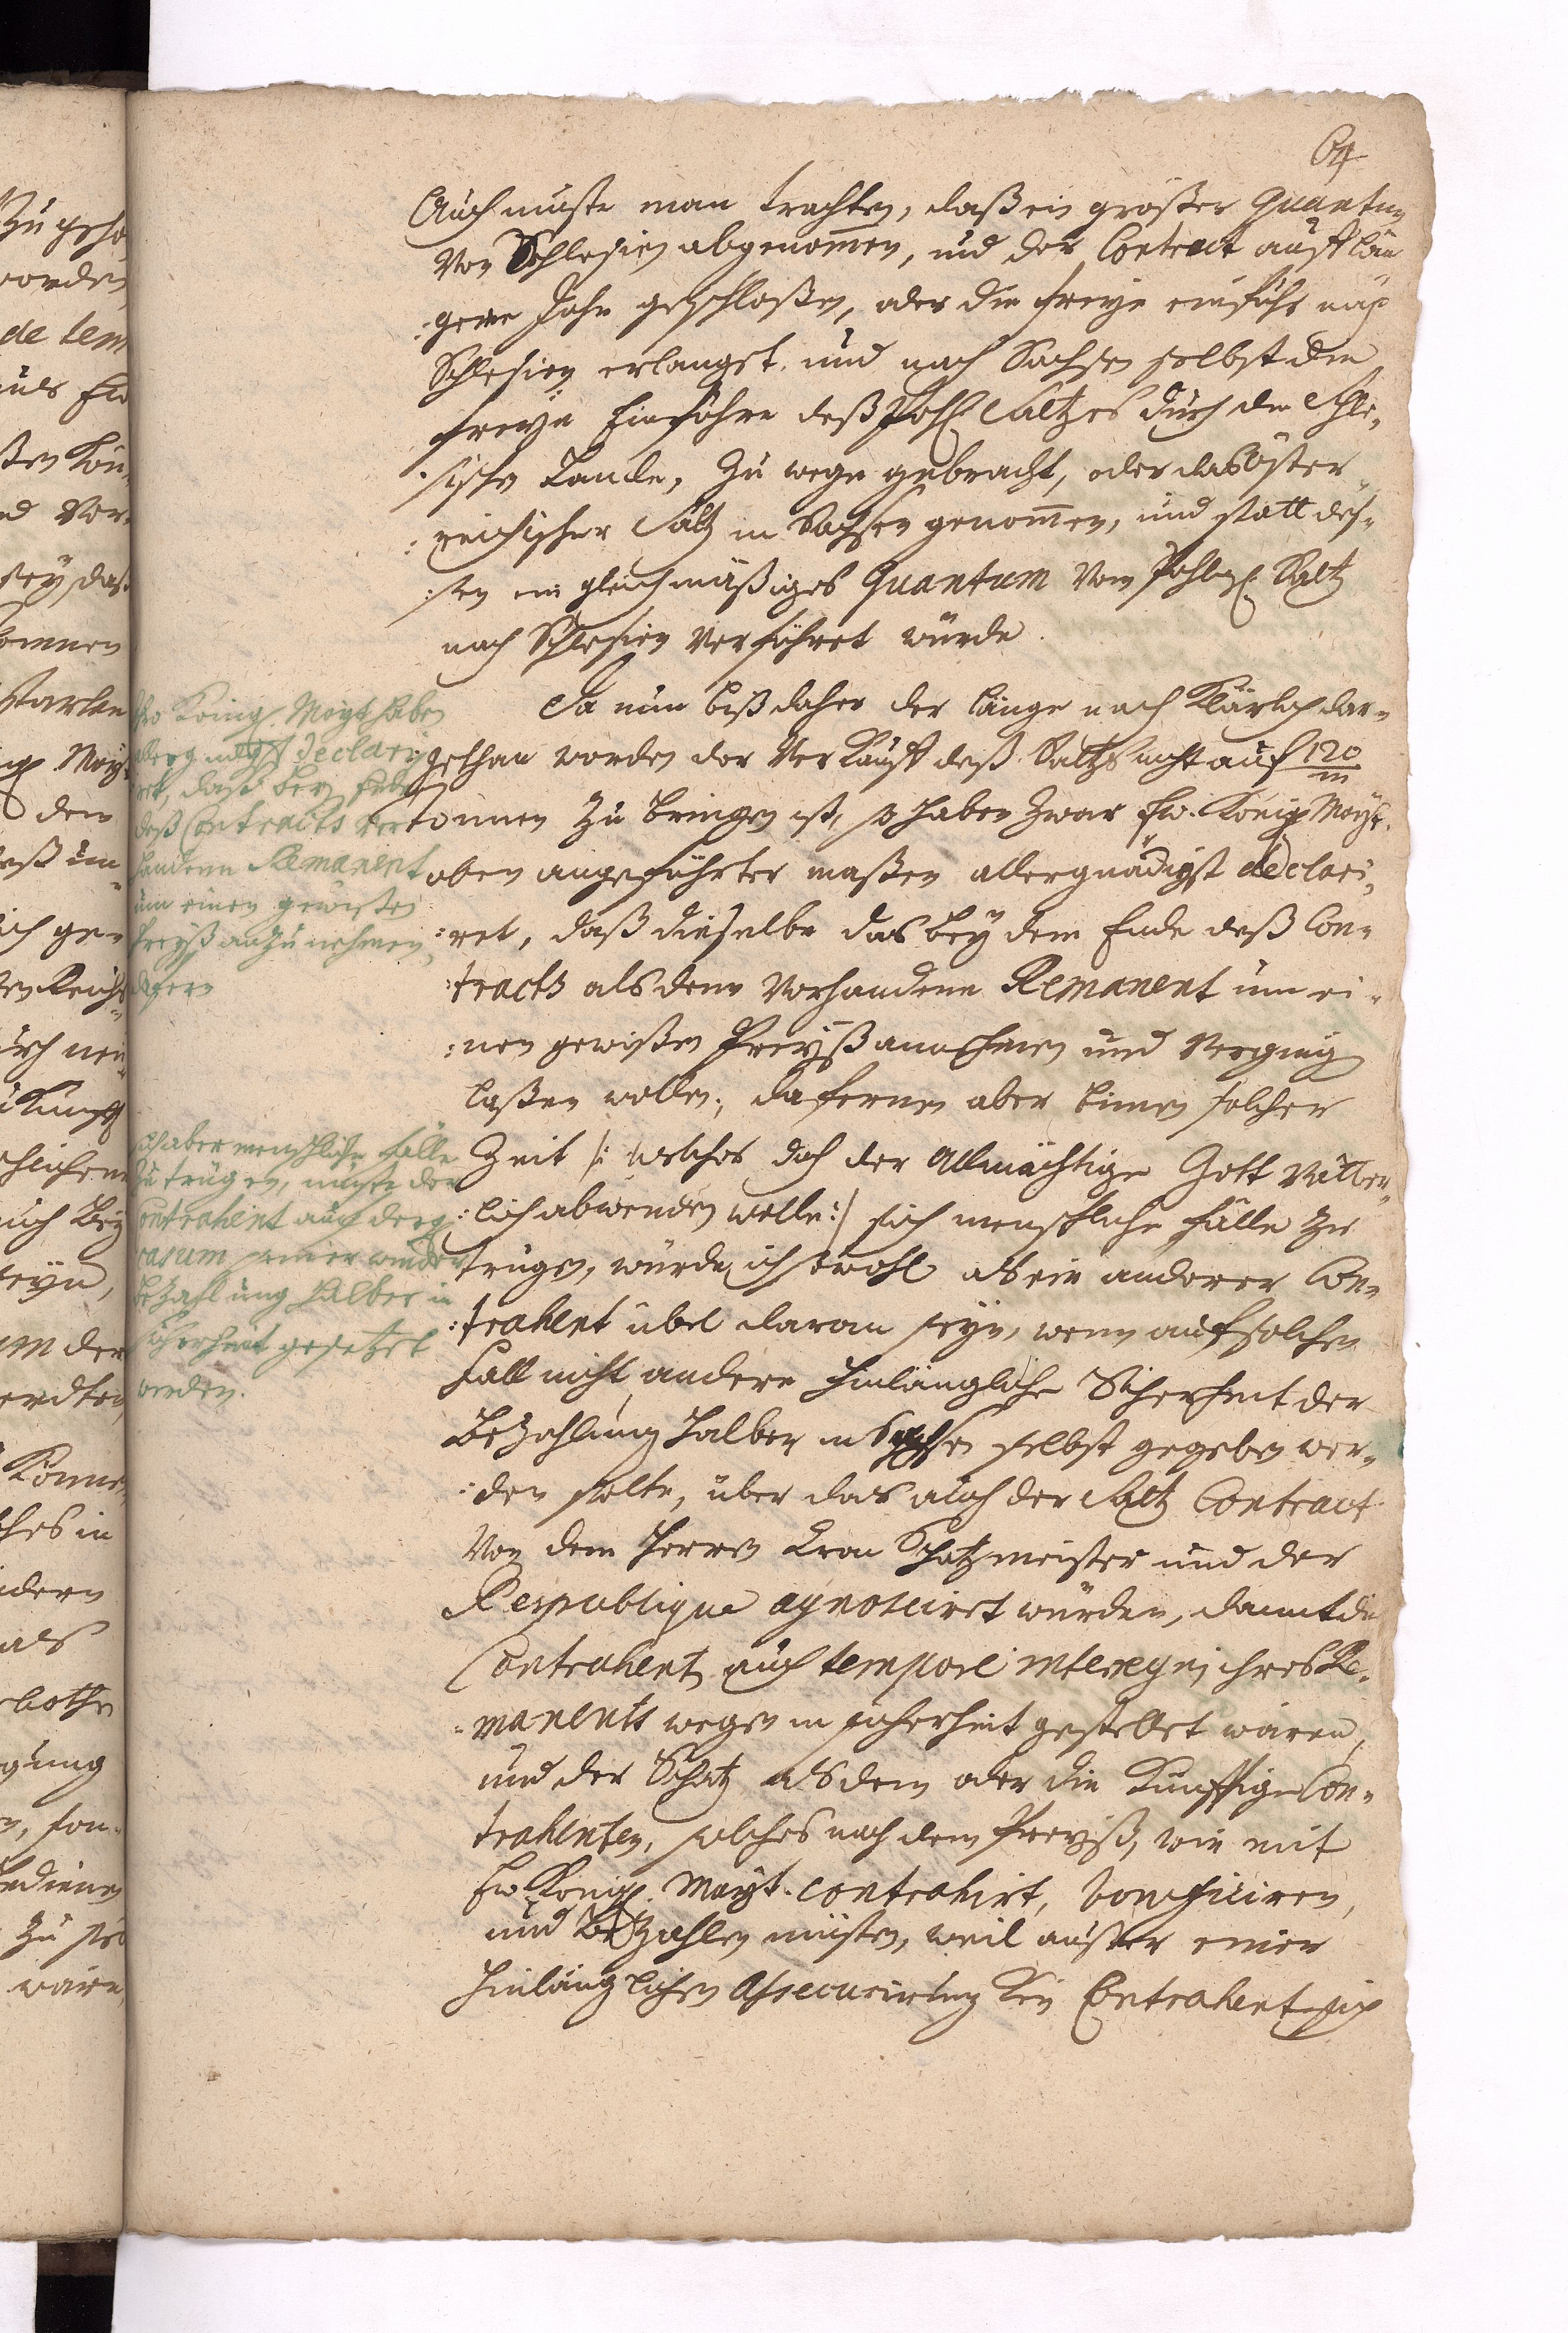 64
Auch müste man trachten, daß ein größer Quantum
von Schlesien abgenommen, und der Contract auff län
:gere Jahr geschloßen, oder die freÿe einfuhr nach
Schlesien erlanget, und nach Sachsen selbst die
freÿe Einfuhre deß Pohl. Saltzes durch die Schle,
:sische Lande, zu wege gebracht, oder das Öster,
:reichischer Saltz in Sachsen genommen, und statt deß,
:sen ein gleichmäßiges Quantum vom Pohln. Saltz
nach Schlesien verführet würde.
Da nun biß daher der länge nach Klärlich dar,
:gethan worden der Verkauff deß Saltzes nicht auf 120/m
tonnen zu bringen ist, so haben zwar Ew. Königl. Maÿt.
oben angeführter maßen allergnädigst declari,
:ret, daß dieselbe das beÿ dem Ende deß Con,
:tracts als denn vorhandene Remanent um ei,
:nen gewißen Preÿß annehmen und
laßen wollen; dafernen aber binnen solcher
Zeit /: welches doch der Allmächtige Gott Vätter,
:lich abwenden wolle :/ sich menschliche Fälle zu
trügen, würde ich sowohl als ein anderer Con,
:trahent übel daran seÿn, wenn auf solchen
Fall nicht andere hinlängliche Sicherheit der
Bezahlung halber in Sachsen selbst gegeben wer,
:den solte, über das auch der Saltz Contract
von dem Herrn Cron Schatzmeister und der
Respublique agnosciret würden, damit die
Contrahent auch tempore interregni ihres Re,
:manents wegen in sicherheit gestellet wären,
und der Schatz als dem oder die Künfftige Con,
trahenten, solches nach dem Preÿß, wie mit
Ew. Königl. Maÿt. contrahirt, bonificiren,
und bezahlen müsten, weil außer einer
hinlänglichen Assecurirung Kein Contrahent sich
Ew Königl. Maÿt haben
allergndgst declari
ret, daß beÿ Ende
deß Contracts vor
handene Remanent
um einen gewißen
Preÿß anzunehmen,
dafern
sich aber menschliche Fälle
zu trügen, müste der
Contrahent auf derg.
casum seiner wieder
bezahlung halber in
sicherheit gesetzet
werden.